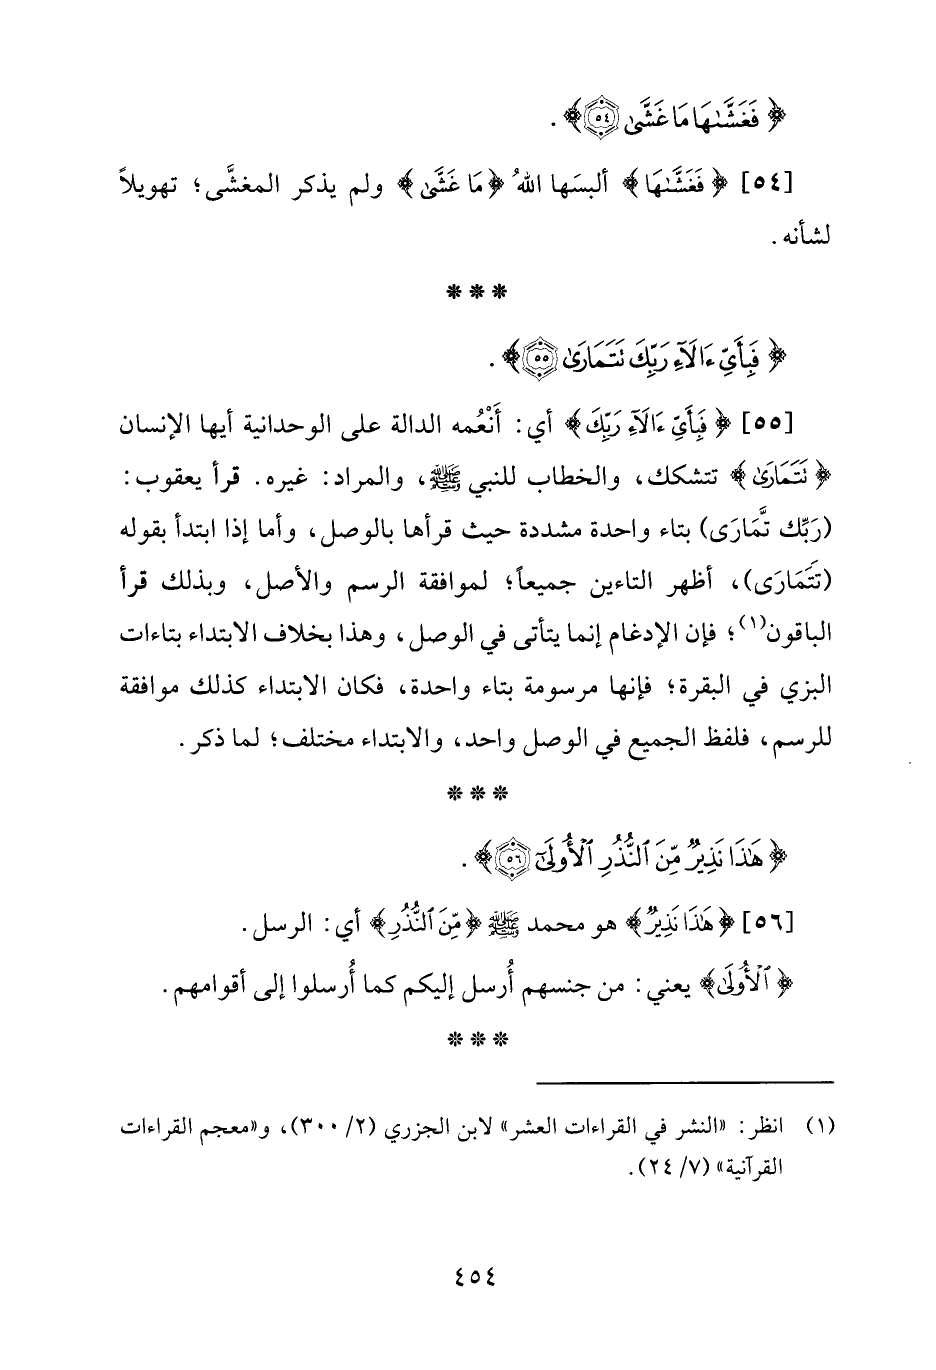 ﴿فَغَشَّىٰهَا مَا غَشَّىٰ ٥٤﴾ .
[٥٤] ﴿فَغَشَّىٰهَا﴾ ألبسَها اللهُ ﴿مَا غَشَّىٰ﴾ ولم يذكر المغشَّى؛ تهويلاً
لشأنه .
* * *
﴿فَبِأَيِّ ءَالَآءِ رَبِّكَ تَتَمَارَىٰ ٥٥﴾ .
[٥٥] ﴿فَبِأَيِّ ءَالَآءِ رَبِّكَ﴾ أي: أَنْعُمه الدالة على الوحدانية أيها الإنسان
﴿تَتَمَارَىٰ﴾ تتشكك، والخطاب للنبي ﷺ، والمراد: غيره. قرأ يعقوب:
(رَبِّك تَّمَارَى) بتاء واحدة مشددة حيث قرأها بالوصل، وأما إذا ابتدأ بقوله
(تَتَمَارَى)، أظهر التاءين جميعاً؛ لموافقة الرسم والأصل، وبذلك قرأ
الباقون(١)؛ فإن الإدغام إنما يتأتى في الوصل، وهذا بخلاف الابتداء بتاءات
البزي في البقرة؛ فإنها مرسومة بتاء واحدة، فكان الابتداء كذلك موافقة
للرسم، فلفظ الجميع في الوصل واحد، والابتداء مختلف؛ لما ذكر.
* * *
﴿هَٰذَا نَذِيرٌ مِّنَ ٱلنُّذُرِ ٱلْأُولَىٰٓ ٥٦﴾ .
[٥٦] ﴿هَٰذَا نَذِيرٌ﴾ هو محمد ﷺ ﴿مِّنَ ٱلنُّذُرِ﴾ أي: الرسل.
﴿ٱلْأُولَىٰ﴾ يعني: من جنسهم أُرسل إليكم كما أُرسلوا إلى أقوامهم.
* * *
(١) انظر: «النشر في القراءات العشر» لابن الجزري (٢/ ٣٠٠)، و«معجم القراءات
القرآنية» (٧/ ٢٤).
٤٥٤